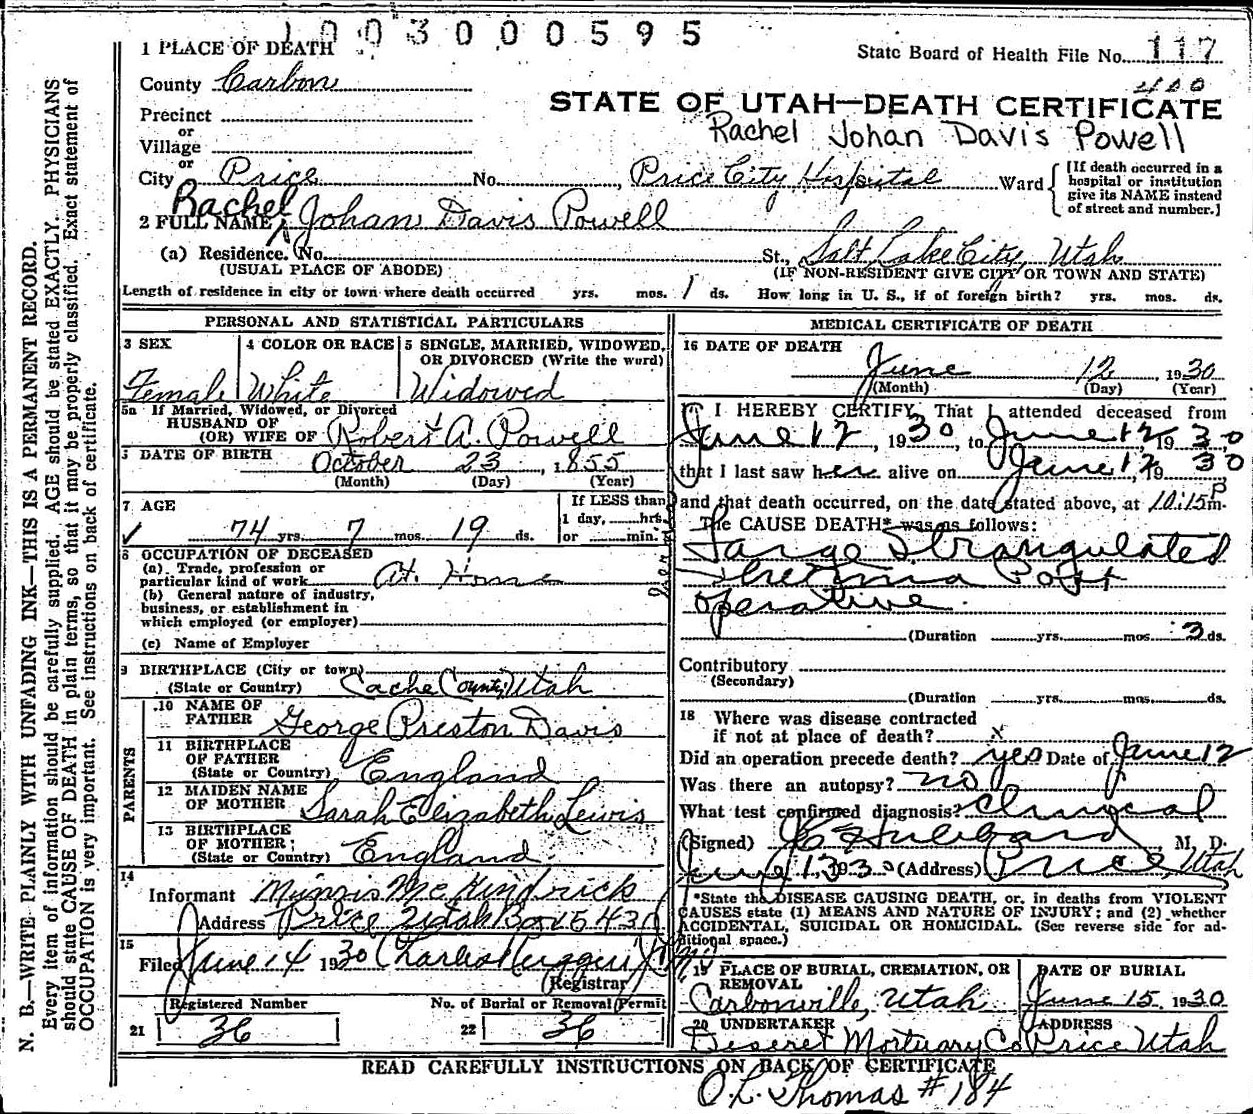 1003000595
1 PLACE OF DEATH
State Board of Health File No. 117
County Carbon
400
STATE OF UTAH—DEATH CERTIFICATE
Precinct
Rachel Johan Davis Powell
or
Village
or
City Price No. , Price City Hospital Ward [If death occurred in a hospital or institution give its NAME instead of street and number.]
Rachel
2 FULL NAME Johan Davis Powell
(a) Residence. No. St., Salt Lake City, Utah
(USUAL PLACE OF ABODE) (IF NON-RESIDENT GIVE CITY OR TOWN AND STATE)
Length of residence in city or town where death occurred yrs. mos. 1 ds. How long in U. S., if of foreign birth? yrs. mos. ds.
PERSONAL AND STATISTICAL PARTICULARS
3 SEX
Female
4 COLOR OR RACE
White
5 SINGLE, MARRIED, WIDOWED, OR DIVORCED (Write the word)
Widowed
5a If Married, Widowed, or Divorced
HUSBAND OF
(OR) WIFE OF Robert A. Powell
DATE OF BIRTH October 23, 1855
(Month) (Day) (Year)
7 AGE
74 yrs. 7 mos. 19 ds.
If LESS than
1 day, hrs.
or min.
8 OCCUPATION OF DECEASED
(a) Trade, profession or
particular kind of work At Home
(b) General nature of industry,
business, or establishment in
which employed (or employer)
(c) Name of Employer
9 BIRTHPLACE (City or town)
(State or Country) Cache County, Utah
PARENTS
10 NAME OF
FATHER George Preston Davis
11 BIRTHPLACE
OF FATHER
(State or Country) England
12 MAIDEN NAME
OF MOTHER Sarah Elizabeth Lewis
13 BIRTHPLACE
OF MOTHER
(State or Country) England
14
Informant Minnis McKendrick
Address Price Utah Box 543
15
Filed June 14 1930
(Registrar)
Registered Number
21 36
No. of Burial or Removal Permit
22 36
MEDICAL CERTIFICATE OF DEATH
16 DATE OF DEATH
June 12, 1930
(Month) (Day) (Year)
I HEREBY CERTIFY, That I attended deceased from
June 12, 1930, to June 12, 1930
that I last saw her alive on June 12, 1930
and that death occurred, on the date stated above, at 10:15 P m.
The CAUSE DEATH* was as follows:
Large Strangulated
Post
operative.
(Duration yrs. mos. 3 ds.
Contributory
(Secondary)
(Duration yrs. mos. ds.
18 Where was disease contracted
if not at place of death? x
Did an operation precede death? yes Date of June 12
Was there an autopsy? no
What test confirmed diagnosis? Clinical
(Signed) Hubbard M. D.
June 13, 1930 (Address) Price Utah
*State the DISEASE CAUSING DEATH, or, in deaths from VIOLENT
CAUSES state (1) MEANS AND NATURE OF INJURY; and (2) whether
ACCIDENTAL, SUICIDAL OR HOMICIDAL. (See reverse side for ad-
ditional space.)
19 PLACE OF BURIAL, CREMATION, OR
REMOVAL
Carbonville, Utah
DATE OF BURIAL
June 15, 1930
20 UNDERTAKER
Deseret Mortuary Co
ADDRESS
Price Utah
READ CAREFULLY INSTRUCTIONS ON BACK OF CERTIFICATE
O. L. Thomas # 184
N. B.—WRITE PLAINLY WITH UNFADING INK—THIS IS A PERMANENT RECORD.
Every item of information should be carefully supplied. AGE should be stated EXACTLY. PHYSICIANS
should state CAUSE OF DEATH in plain terms, so that it may be properly classified. Exact statement of
OCCUPATION is very important. See instructions on back of certificate.